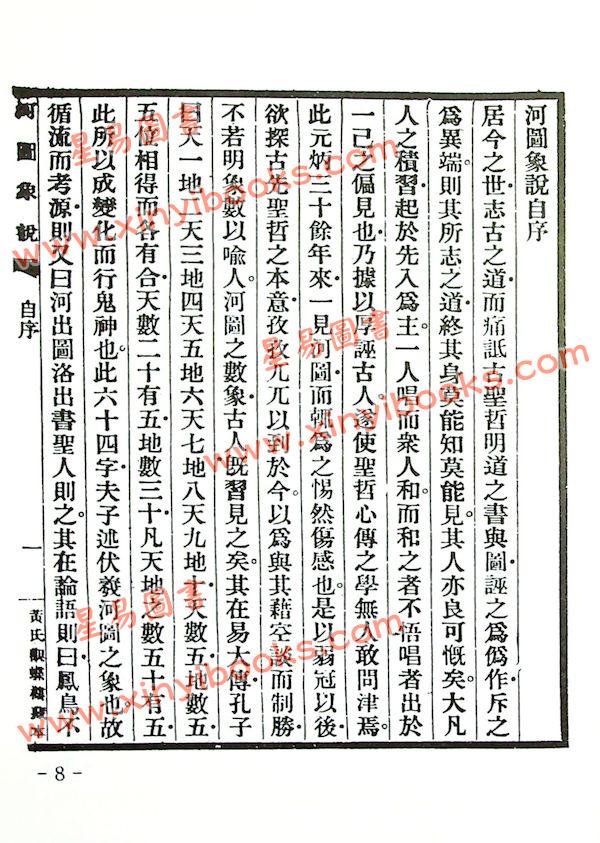 河圖象說自序
居今之世志古之道而痛詆古聖哲明道之書與圖誣之爲僞作斥之
爲異端則其所志之道終其身莫能知莫能見其人亦良可慨矣大凡
人之積習起於先入爲主一人唱而衆人和而和之者不悟唱者出於
一己之偏見也乃據以厚誣古人遂使聖哲心傳之學無人敢問津焉
此元炳三十餘年來一見河圖而輒爲之惕然傷感也是以弱冠以後
欲探古先聖哲之本意孜孜兀兀以到於今以爲與其藉空談而制勝
不若明象數以喻人河圖之數象古人既習見之矣其在易大傳孔子
曰天一地二天三地四天五地六天七地八天九地十天數五地數五
五位相得而各有合天數二十有五地數三十凡天地之數五十有五
此所以成變化而行鬼神也此六十四字夫子述伏羲河圖之象也故
循流而考源則又曰河出圖洛出書聖人則之其在論語則曰鳳鳥不
河圖象說
自序
一
黃氏觀蝶樓
- 8 -
星易圖書
www.xinyibooks.com
星易圖書
www.xinyibooks.com
星易圖書
www.xinyibooks.com